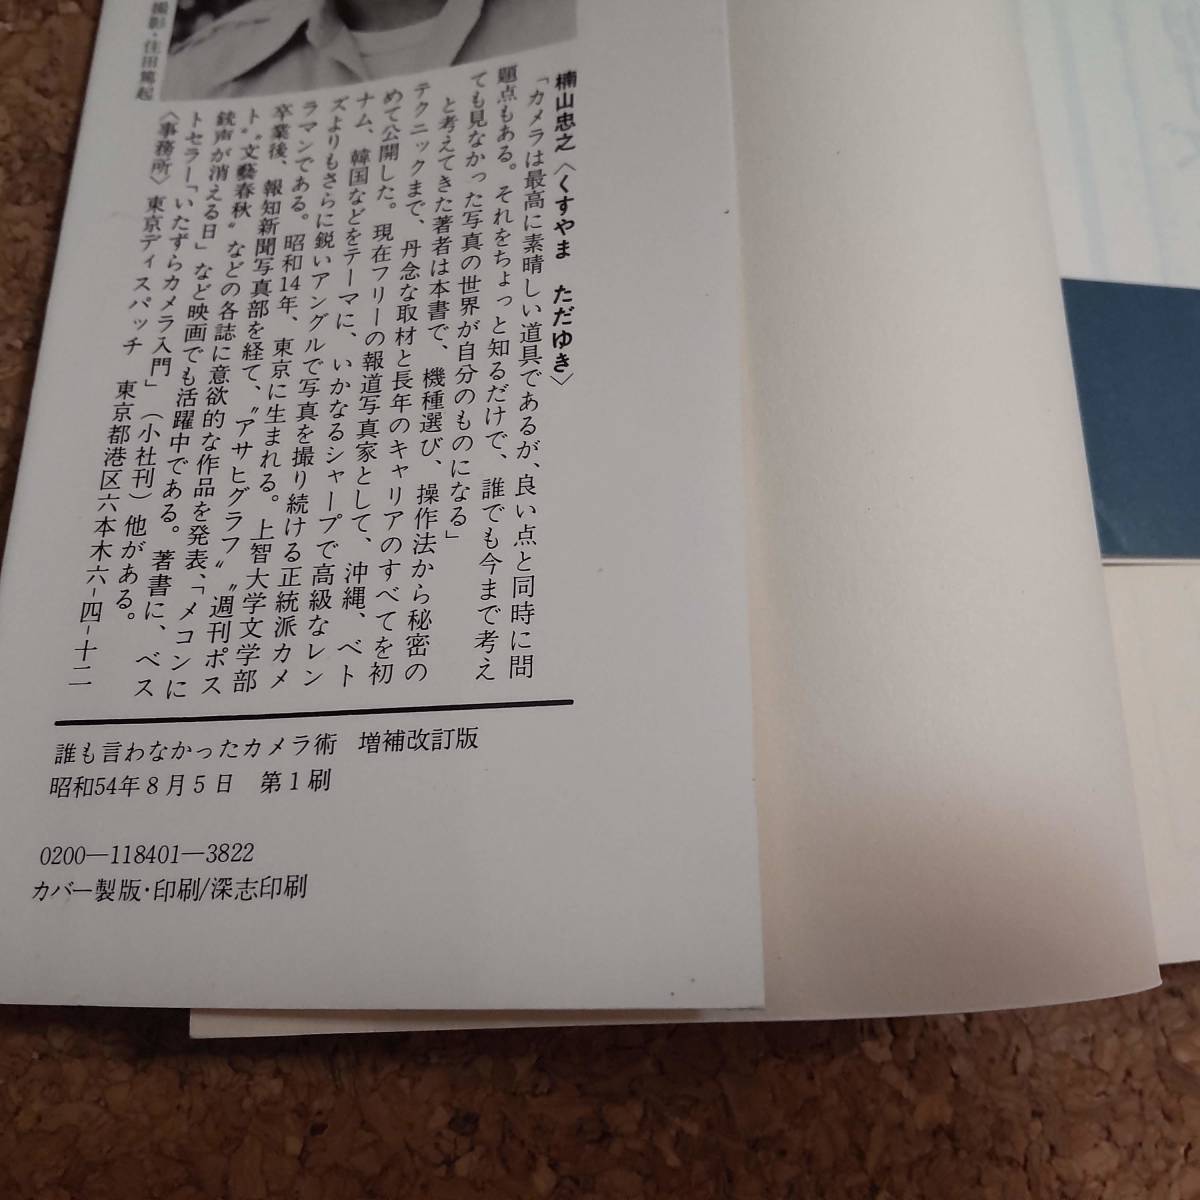 撮影・住田篤起
楠山忠之〈くすやま　ただゆき〉
「カメラは最高に素晴しい道具であるが、良い点と同時に問
題点もある。それをちょっと知るだけで、誰でも今まで考え
ても見なかった写真の世界が自分のものになる」
と考えてきた著者は本書で、機種選び、操作法から秘密の
テクニックまで、丹念な取材と長年のキャリアのすべてを初
めて公開した。現在フリーの報道写真家として、沖縄、ベト
ナム、韓国などをテーマに、いかなるシャープで高級なレン
ズよりもさらに鋭いアングルで写真を撮り続ける正統派カメ
ラマンである。昭和14年、東京に生まれる。上智大学文学部
卒業後、報知新聞写真部を経て、〝アサヒグラフ〟〝週刊ポス
ト〟〝文藝春秋〟などの各誌に意欲的な作品を発表、「メコンに
銃声が消える日」など映画でも活躍中である。著書に、ベス
トセラー「いたずらカメラ入門」（小社刊）他がある。
〈事務所〉東京ディスパッチ　東京都港区六本木六-四-十二
誰も言わなかったカメラ術　増補改訂版
昭和54年8月5日　第1刷
0200―118401―3822
カバー製版・印刷/深志印刷